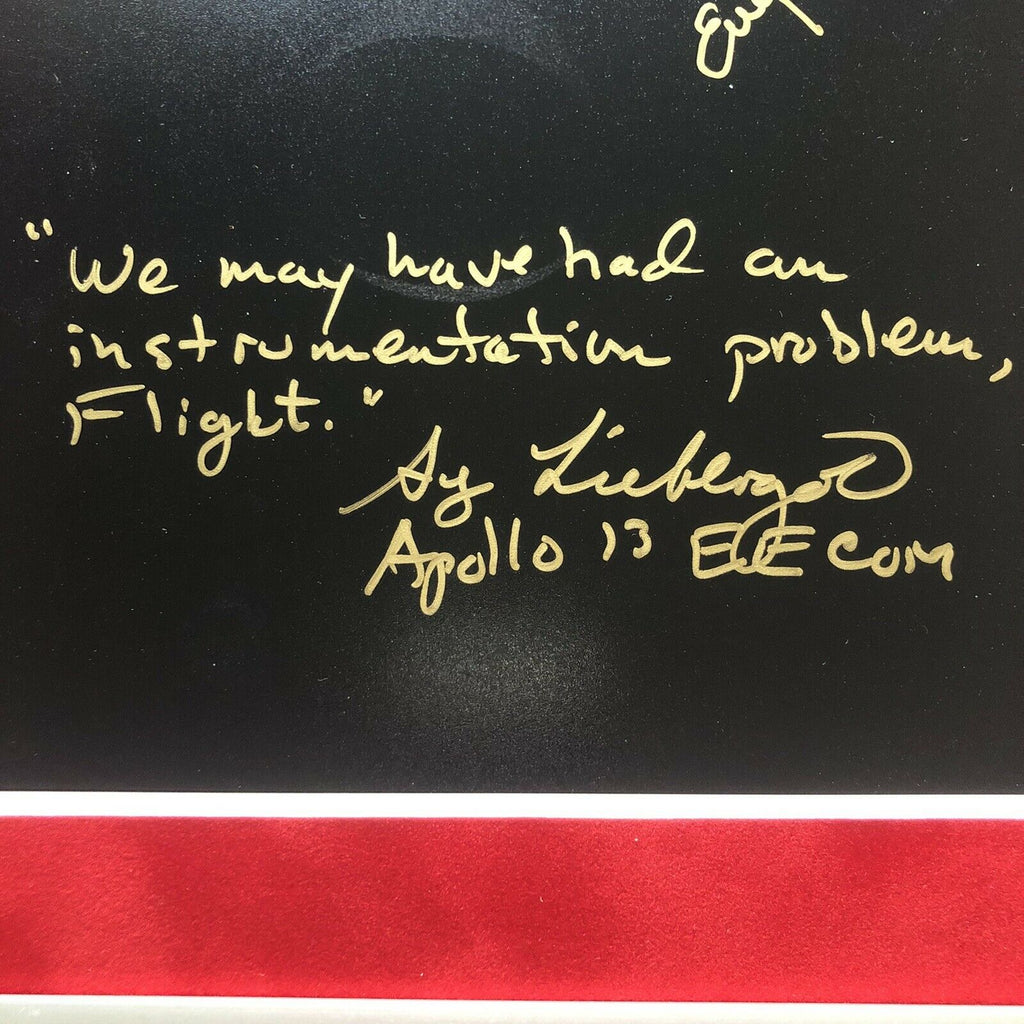 "We may have had an
instrumentation problem,
Flight."
Sy Liebergot
Apollo 13 EECOM